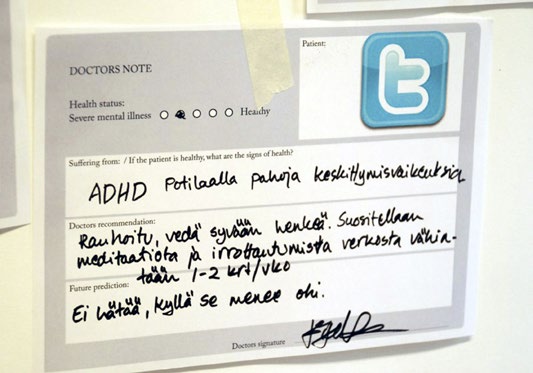 DOCTORS NOTE
Patient:
t
Health status:
Severe mental illness Healthy
Suffering from: / If the patient is healthy, what are the signs of health?
ADHD Potilaalla pahoja keskittymisvaikeuksia
Doctors recommendation:
Rauhoitu, vedä syvään henkeä. Suositellaan
meditaatiota ja irrottautumista verkosta vähin-
tään 1-2 krt/vko
Future prediction:
Ei hätää, kyllä se menee ohi.
Doctors signature